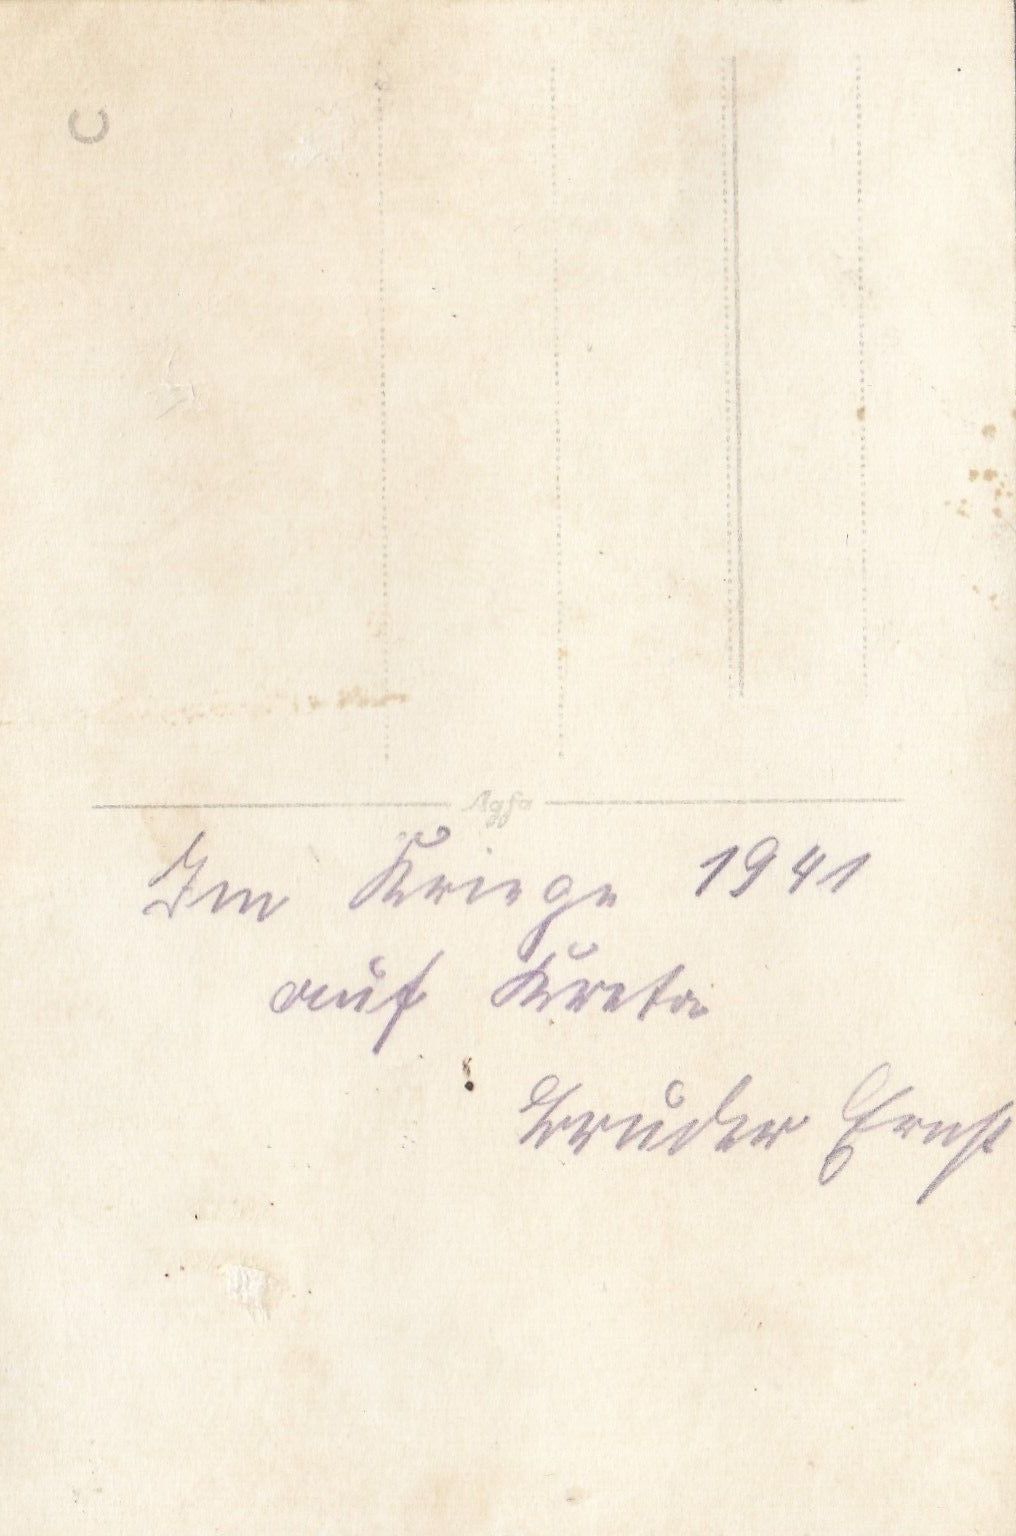 C
Agfa
Im Kriege 1941
auf Kreta
Bruder Ernst